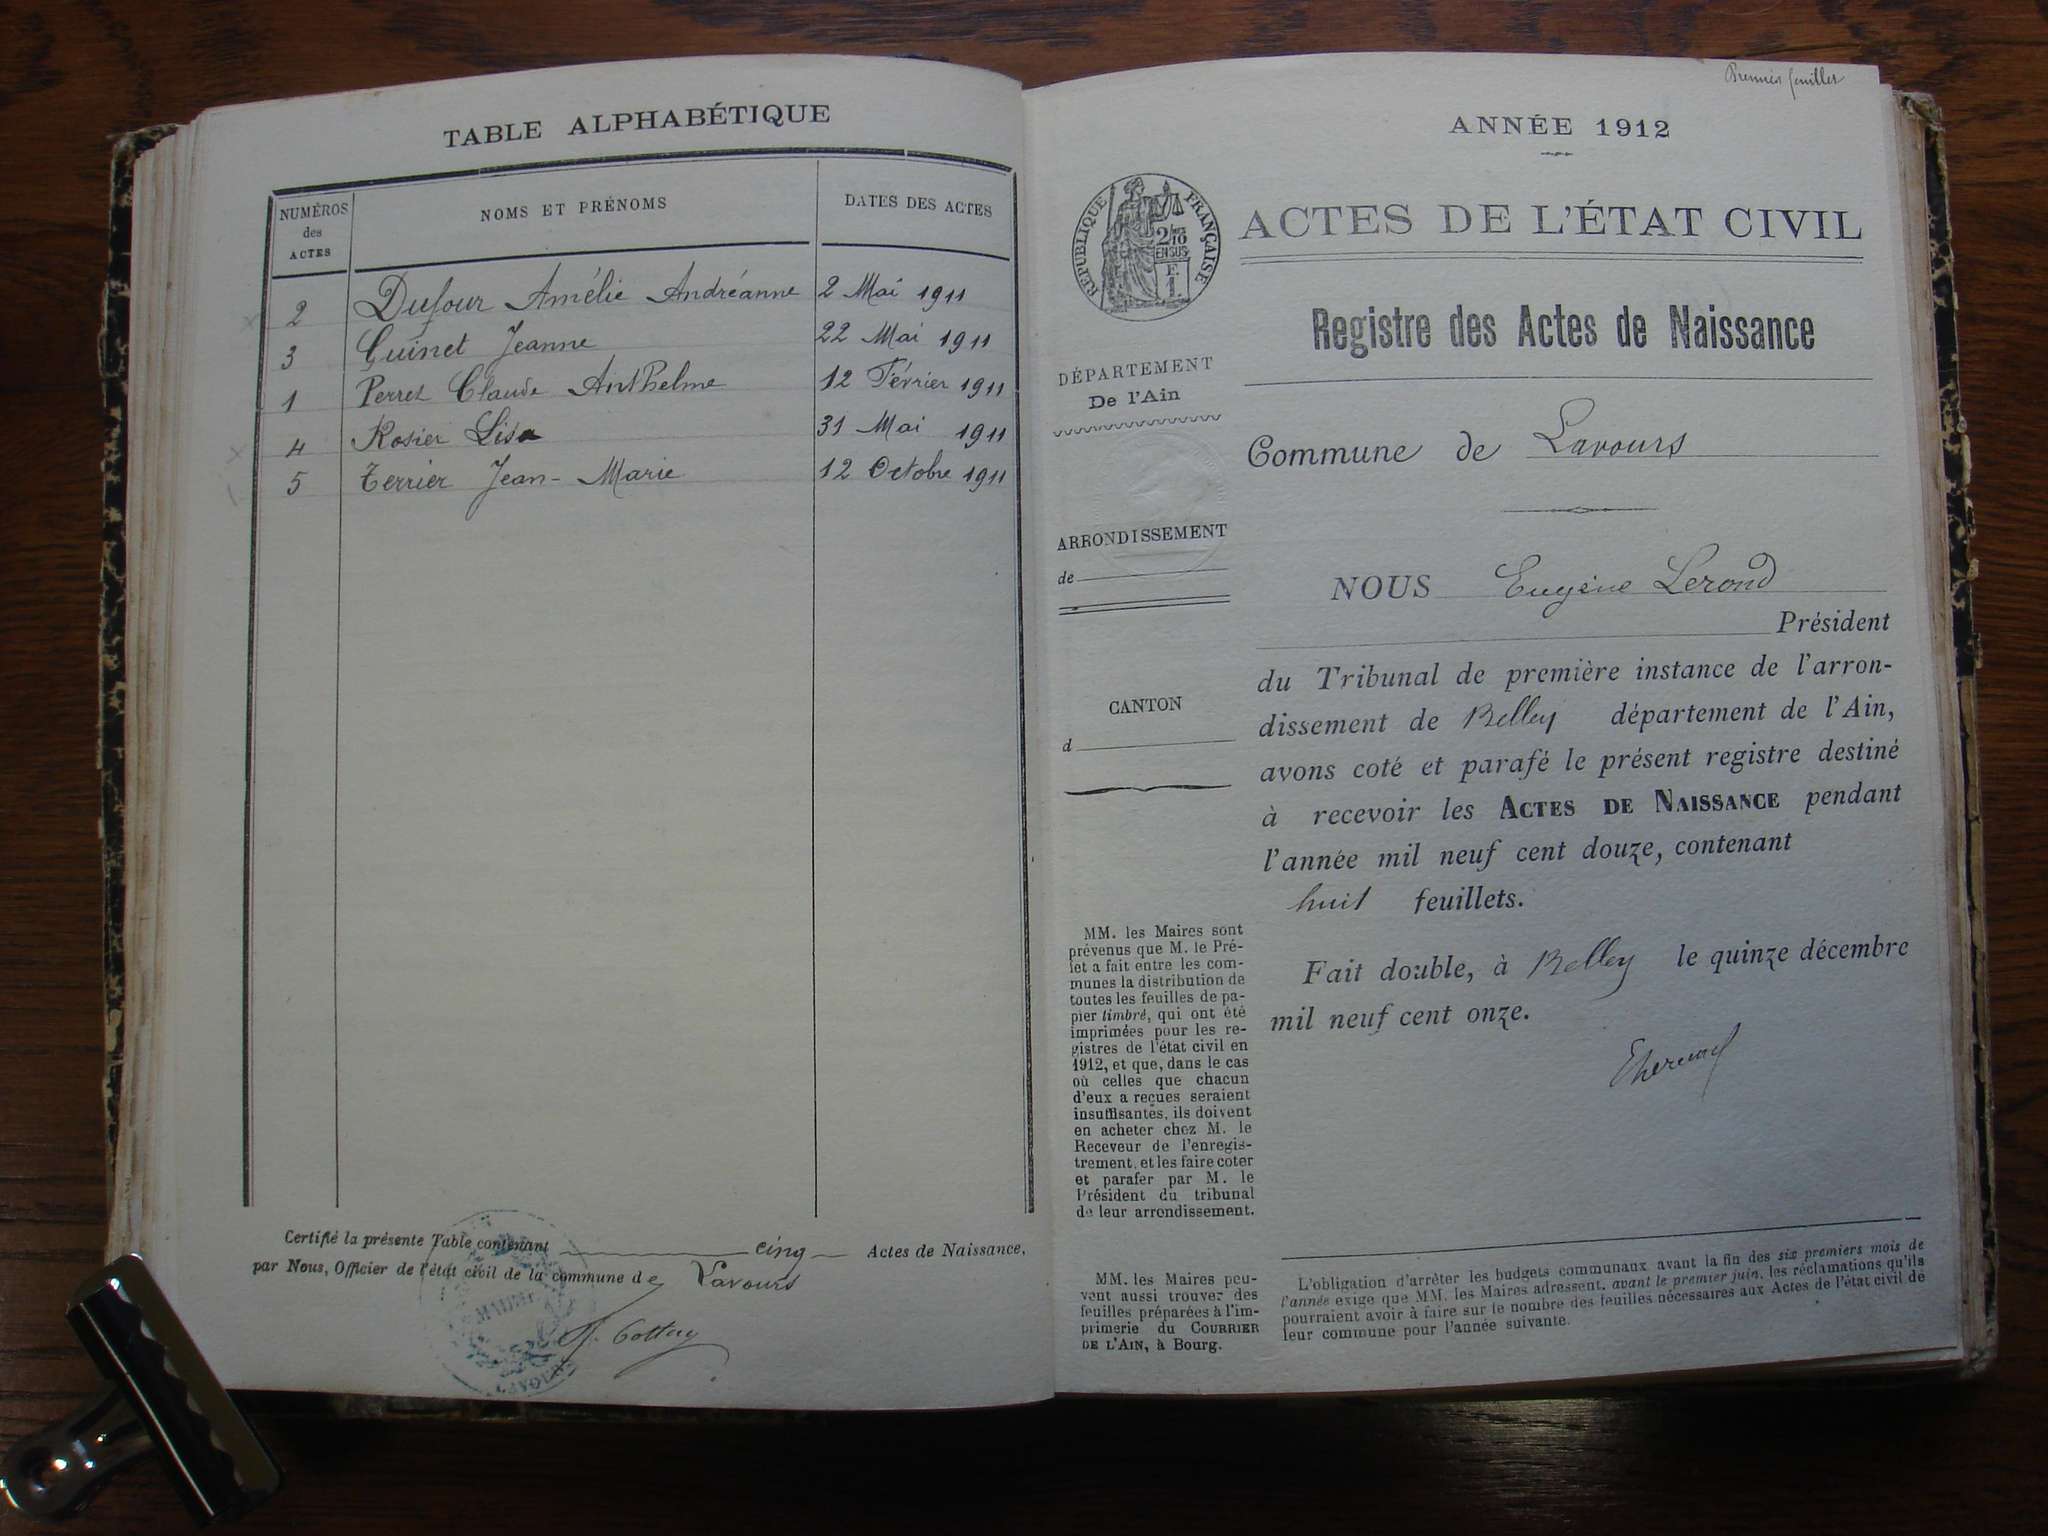 TABLE ALPHABÉTIQUE
NUMÉROS
des
ACTES
NOMS ET PRÉNOMS
DATES DES ACTES
2 Dufour Amélie Andréanne 2 Mai 1911
3 Guinet Jeanne 22 Mai 1911
1 Perret Claude Anthelme 12 Février 1911
4 Rosier Lisa 31 Mai 1911
5 Terrier Jean-Marie 12 Octobre 1911
Certifié la présente Table contenant cinq Actes de Naissance,
par Nous, Officier de l'état civil de la commune de Lavours
MAIRIE
Premier feuillet
ANNÉE 1912
RÉPUBLIQUE FRANÇAISE
2/10
EN SUS
E.
1.
ACTES DE L'ÉTAT CIVIL
Registre des Actes de Naissance
DÉPARTEMENT
De l'Ain
Commune de Lavours
ARRONDISSEMENT
de
NOUS Eugène Lerond
Président
CANTON
d
du Tribunal de première instance de l'arron-
dissement de Belley département de l'Ain,
avons coté et parafé le présent registre destiné
à recevoir les ACTES DE NAISSANCE pendant
l'année mil neuf cent douze, contenant
huit feuillets.
Fait double, à Belley le quinze décembre
mil neuf cent onze.
MM. les Maires sont
prévenus que M. le Pré-
fet a fait entre les com-
munes la distribution de
toutes les feuilles de pa-
pier timbré, qui ont été
imprimées pour les re-
gistres de l'état civil en
1912, et que, dans le cas
où celles que chacun
d'eux a reçues seraient
insuffisantes, ils doivent
en acheter chez M. le
Receveur de l'enregis-
trement, et les faire coter
et parafer par M. le
Président du tribunal
de leur arrondissement.
MM. les Maires peu-
vent aussi trouver des
feuilles préparées à l'im-
primerie du COURRIER
DE L'AIN, à Bourg.
L'obligation d'arrêter les budgets communaux avant la fin des six premiers mois de
l'année exige que MM. les Maires adressent, avant le premier juin, les réclamations qu'ils
pourraient avoir à faire sur le nombre des feuilles nécessaires aux Actes de l'état civil de
leur commune pour l'année suivante.